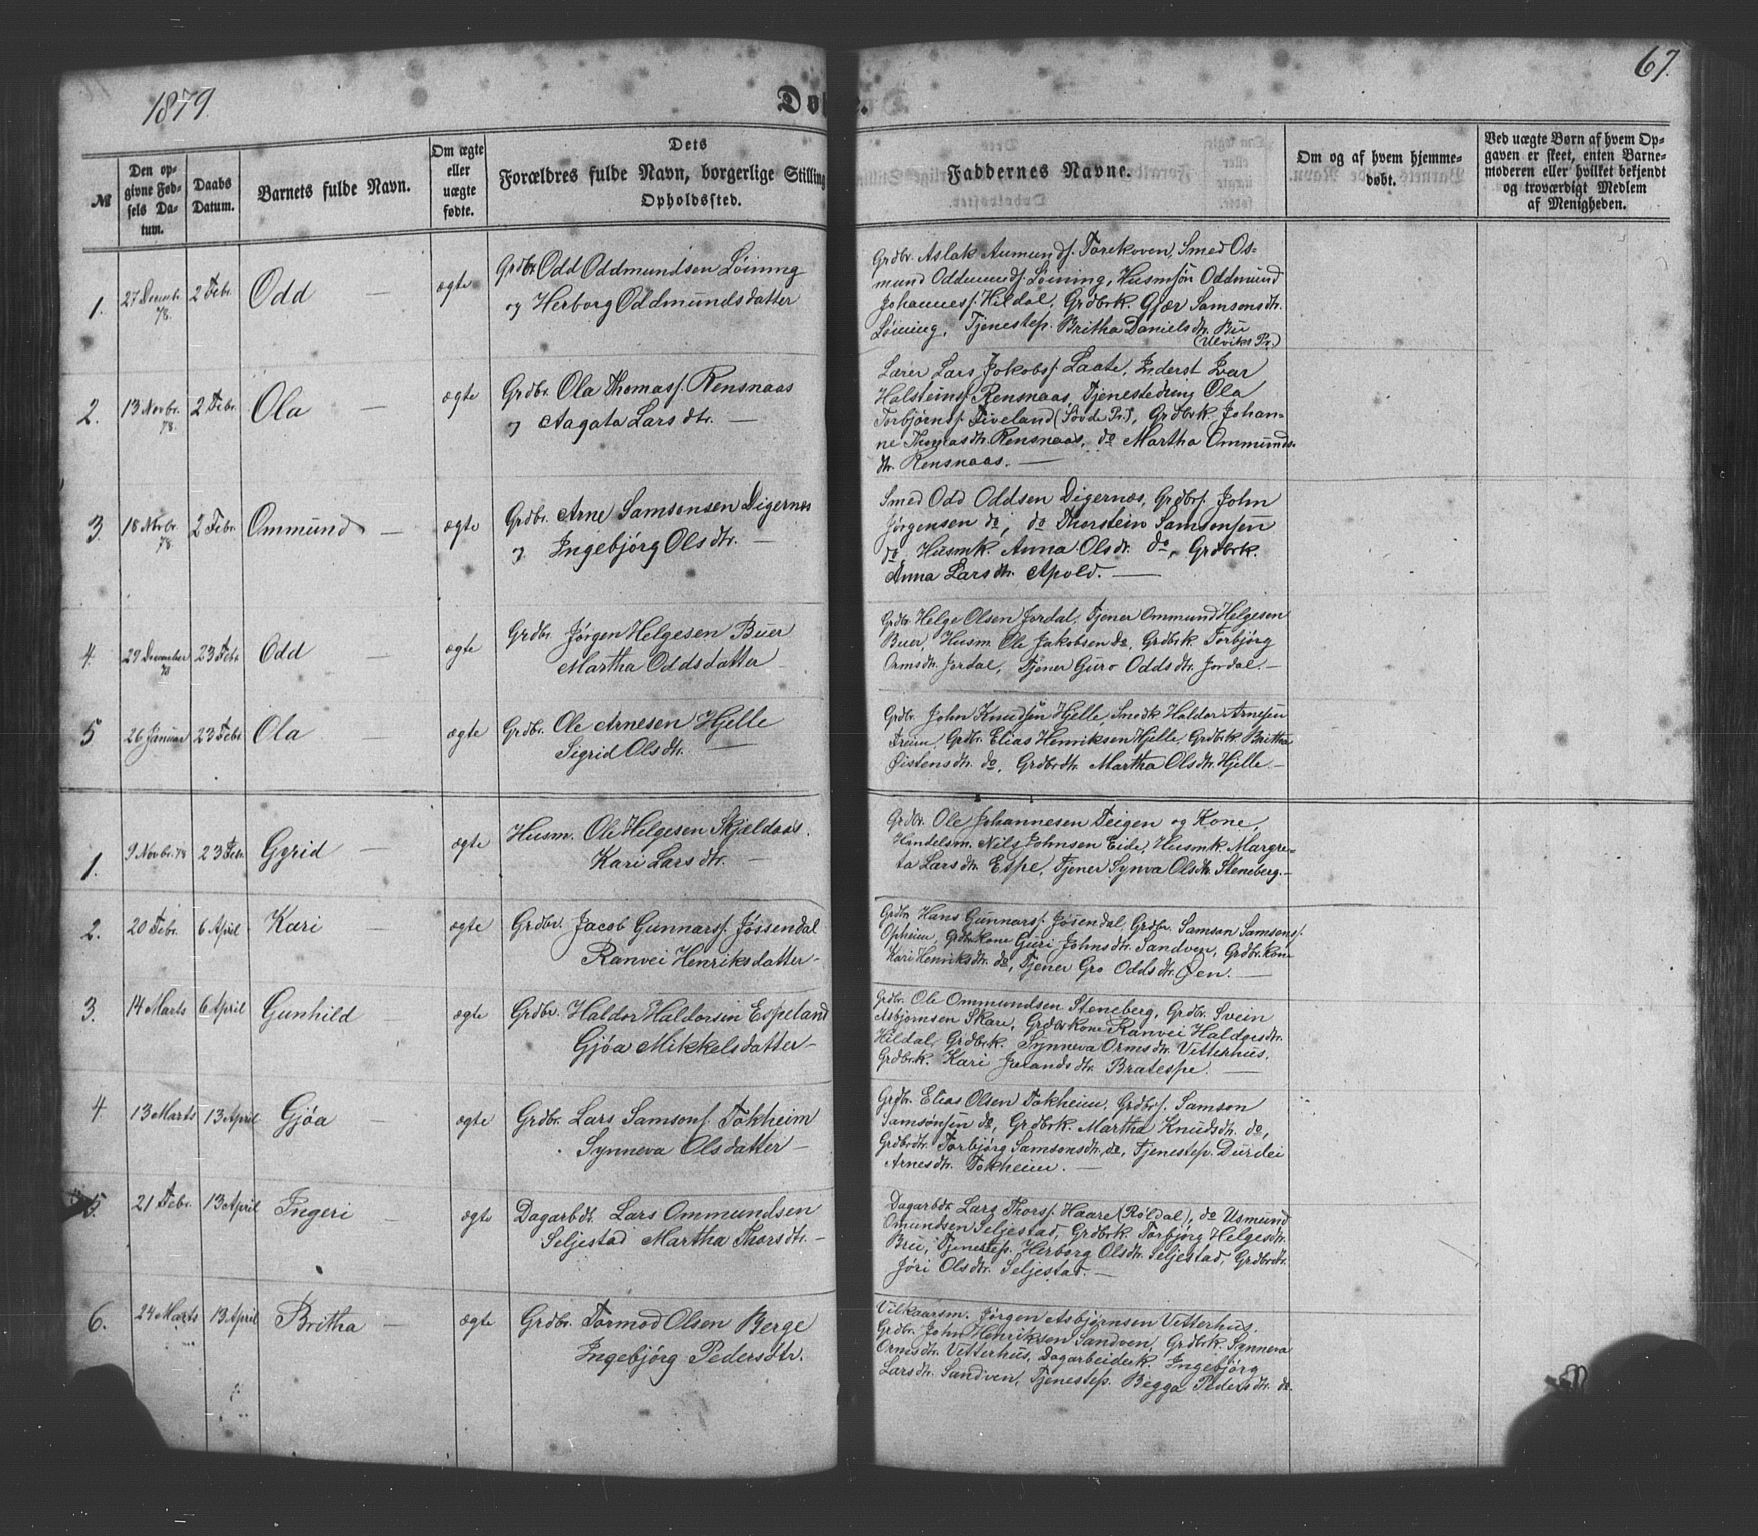 1879
67.
Døbte.
№
Den opgivne Fødsels Datum.
Daabs Datum.
Barnets fulde Navn.
Om ægte eller uægte fødte.
Dets Forældres fulde Navn, borgerlige Stilling
Opholdssted.
Faddernes Navne.
Om og af hvem hjemmedøbt.
Ved uægte Børn af hvem Opgaven er skeet, enten Barnemoderen eller hvilket bekjendt og troværdigt Medlem af Menigheden.
1. 27 Decembr. 78. 2 Febr. Odd — ægte
Grdbr. Odd Oddmundsen Løining
og Herborg Oddmundsdatter
Grdbr. Aslak Aumunds. Torekoven, Smed Os-
mund Oddmunds. Løining, Husmsøn Oddmund
Johanness. Hildal, Grdbrk. Gjær Samsonsdtr.
Løining, Tjenestep. Britha Danielsdtr. Bu
(Ulviks Pr.)
2. 13 Novbr. 78. 2 Febr. Ola — ægte
Grdbr. Ola Thomass. Rensnaas
og Aagata Larsdtr. —
Lærer Lars Jakobs. Laate, Inderst Ivar
Halsteins. Rensnaas, Tjenestedreng Ola
Torbjørns. Fiveland (Sovde Pr.), Grdbrk. Johan-
ne Thomasdtr. Rensnaas, do Martha Ommunds-
dtr. Rensnaas. —
3. 18 Novbr. 78. 2 Febr. Ommund — ægte
Grdbr. Arne Samsonsen Digernes
og Ingebjørg Olsdtr. —
Smed Odd Oddsen Digernæs, Grdbrs. John
Jørgensen do, do Thorstein Samsonsen
do, Husmk. Anna Olsdtr. do, Grdbrk.
Anna Larsdtr. Apold. —
4. 29 December 78 23 Febr. Odd — ægte
Grdbr. Jørgen Helgesen Buer
Martha Oddsdatter
Grdbr. Helge Olsen Jordal, Tjener Ommund Helgesen
Buer, Husm. Ole Jakobsen do, Grdbrk. Torbjørg
Ormsdtr. Jordal, Tjener Guro Oddsdtr. Jordal. —
5 26 Januar 23 Febr. Ola — ægte
Grdbr. Ole Arnesen Hjelle
Sigrid Olsdtr. —
Grdbr. John Knudsen Hjelle, Smedk. Haldor Arnesen
Freim, Grdbr. Elias Henriksen Hjelle, Grdbrk. Britha
Øistensdtr. do, Grdbrdtr. Martha Olsdtr. Hjelle —
1. 9 Novbr. 78 23 Febr. Gyrid — ægte
Husm. Ole Helgesen Skjeldaas.
Kari Larsdtr. —
Grdbr. Ole Johannesen Teigen og Kone,
Handelsm. Nils Johnsen Eide, Husmk. Margre-
ta Larsdtr. Espe, Tjener Synva Olsdtr. Steneberg. —
2. 20 Febr. 6 April Kari — ægte
Grdbr. Jacob Gunnars. Jøssendal
Ranvei Henriksdatter —
Grdbr. Hans Gunnars. Jøsendal, Grdbr. Samson Samsons.
Opheim, Grdbrkone Guri Johnsdtr. Sandven, Grdbrkon
Kari Henriksdtr. do, Tjener Gro Oddsdtr. Øen. —
3. 14 Marts 6 April Gunhild ægte
Grdbr. Haldor Haldorsen Espeland
Gjøa Mikkelsdatter —
Grdbr. Ole Ommundsen Steneberg, Grdbr. Svein
Asbjørnsen Skare, Grdbrkone Ranvei Haldgesdtr.
Hildal, Grdbrk. Synneva Ormsdtr. Vitterhus.
Grdbrk. Kari Jorandsdtr. Bratespe. —
4 13 Marts 13 April Gjøa — ægte
Grdbr. Lars Samsons. Tokheim
Synneva Olsdatter —
Grdbr. Elias Olsen Tokheim, Grdbrs. Samson
Samsonsen do, Grdbrk. Martha Knudsdtr. do,
Grdbrdtr. Torbjørg Samsonsdtr. do, Tjenestep. Durdei
Arnesdtr. Tokheim. —
5. 21 Febr. 13 April Ingeri — ægte
Dagarbdr. Lars Ommundsen
Seljestad Martha Thorsdtr. —
Dagarbdr. Lars Thors. Haare (Røldal), do Osmund
Omundsen Seljestad, Grdbrk. Torbjørg Helgesdtr.
Bru, Tjenestep. Herborg Olsdtr. Seljestad, Grdbrdtr.
Jøri Olsdtr. Seljestad. —
6. 24 Marts 13 April Britha — ægte
Grdbr. Tormod Olsen Berge
Ingebjørg Pedersdtr.
Vilkaarsm. Jørgen Asbjørnsen Vitterhus.
Grdbr. John Henriksen Sandven, Grdbrk. Synneva
Ormsdtr. Vitterhus, Dagarbeiderk. Ingebjørg
Larsdtr. Sandven, Tjenestep. Begga Pedersdtr. do.